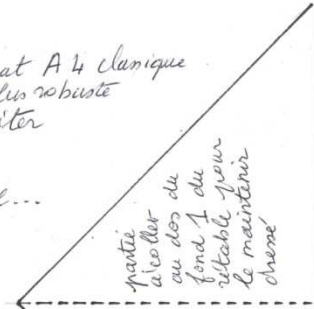 at A4 classique
lus robuste
iter
e...
partie
à coller
au dos du
fond 1 du
rétable pour
le maintenir
dressé